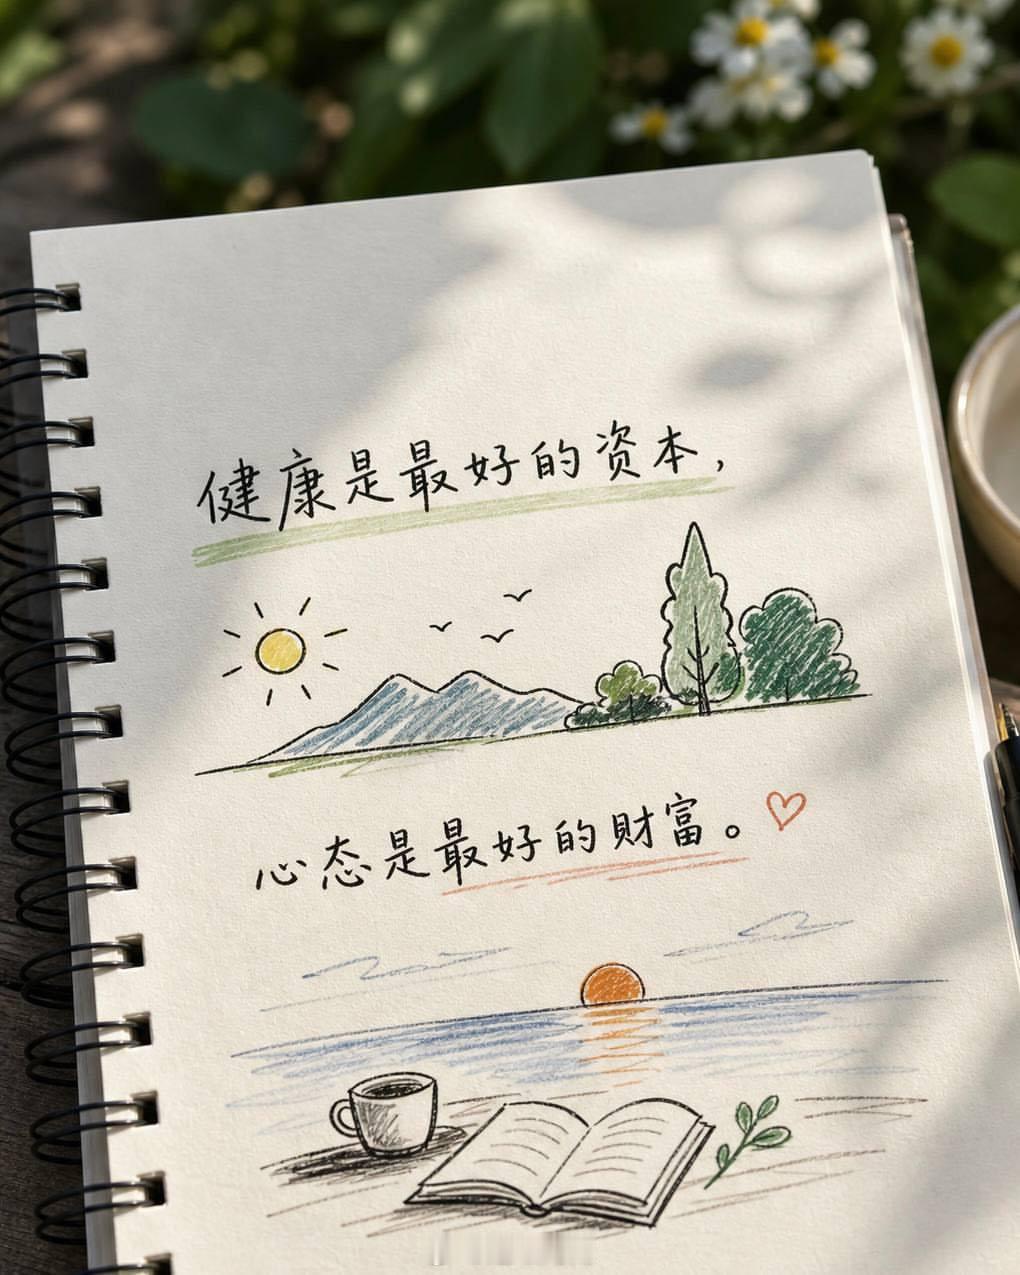 健康是最好的资本，
心态是最好的財富。